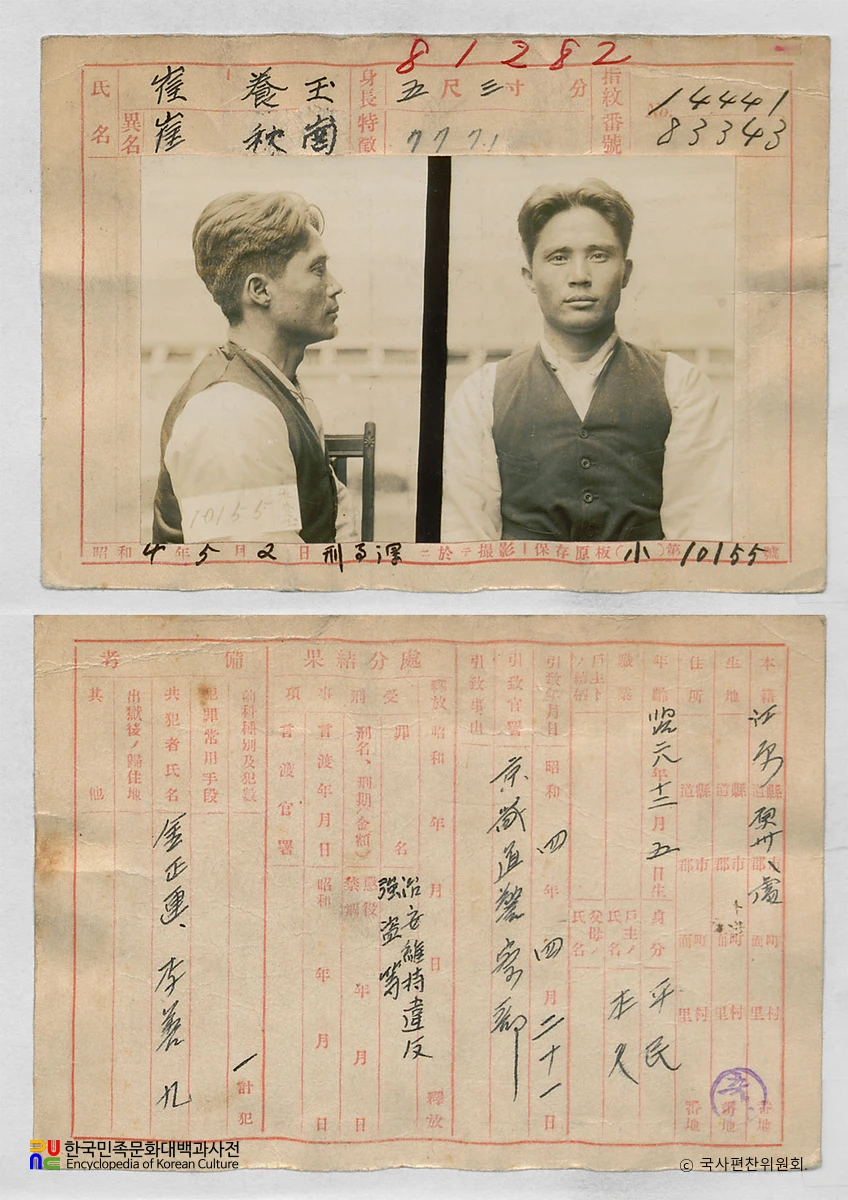 81282
氏名 崔 養 玉 身長 五 尺 三 寸 分 指紋番號 No. 14441 83343
異名 崔 秋 岡 特徵 77 71
10155
昭和 4 年 5 月 2 日 刑事課 ニ於テ撮影 保存原板( 小 )第 10155 號
本籍 江原 道縣 原州 郡市 面町 里村 番地
生地 道縣 郡市 面町 里村 番地
住所 道縣 郡市 面町 里村 番地
年齡 明 元 年 十二 月 五 日生 身分 平民
職業 戶主ノ氏名 本人
戶主トノ續柄 父母ノ氏名
引致年月日 昭和 四 年 四 月 二十一 日
引致官署 京畿道警察部
引致事由
處分結果
釋放 昭和 年 月 日 釋放
受刑 罪名 治安維持違反 强盜等
刑名、刑期(金額) 懲役 禁錮 年 月 日
事項 言渡年月日 昭和 年 月 日
言渡官署
備考
前科種別及犯數 一 計 犯
犯罪常用手段
共犯者氏名 金正連、李善九
出獄後ノ歸住地
其他
한국민족문화대백과사전
Encyclopedia of Korean Culture
© 국사편찬위원회